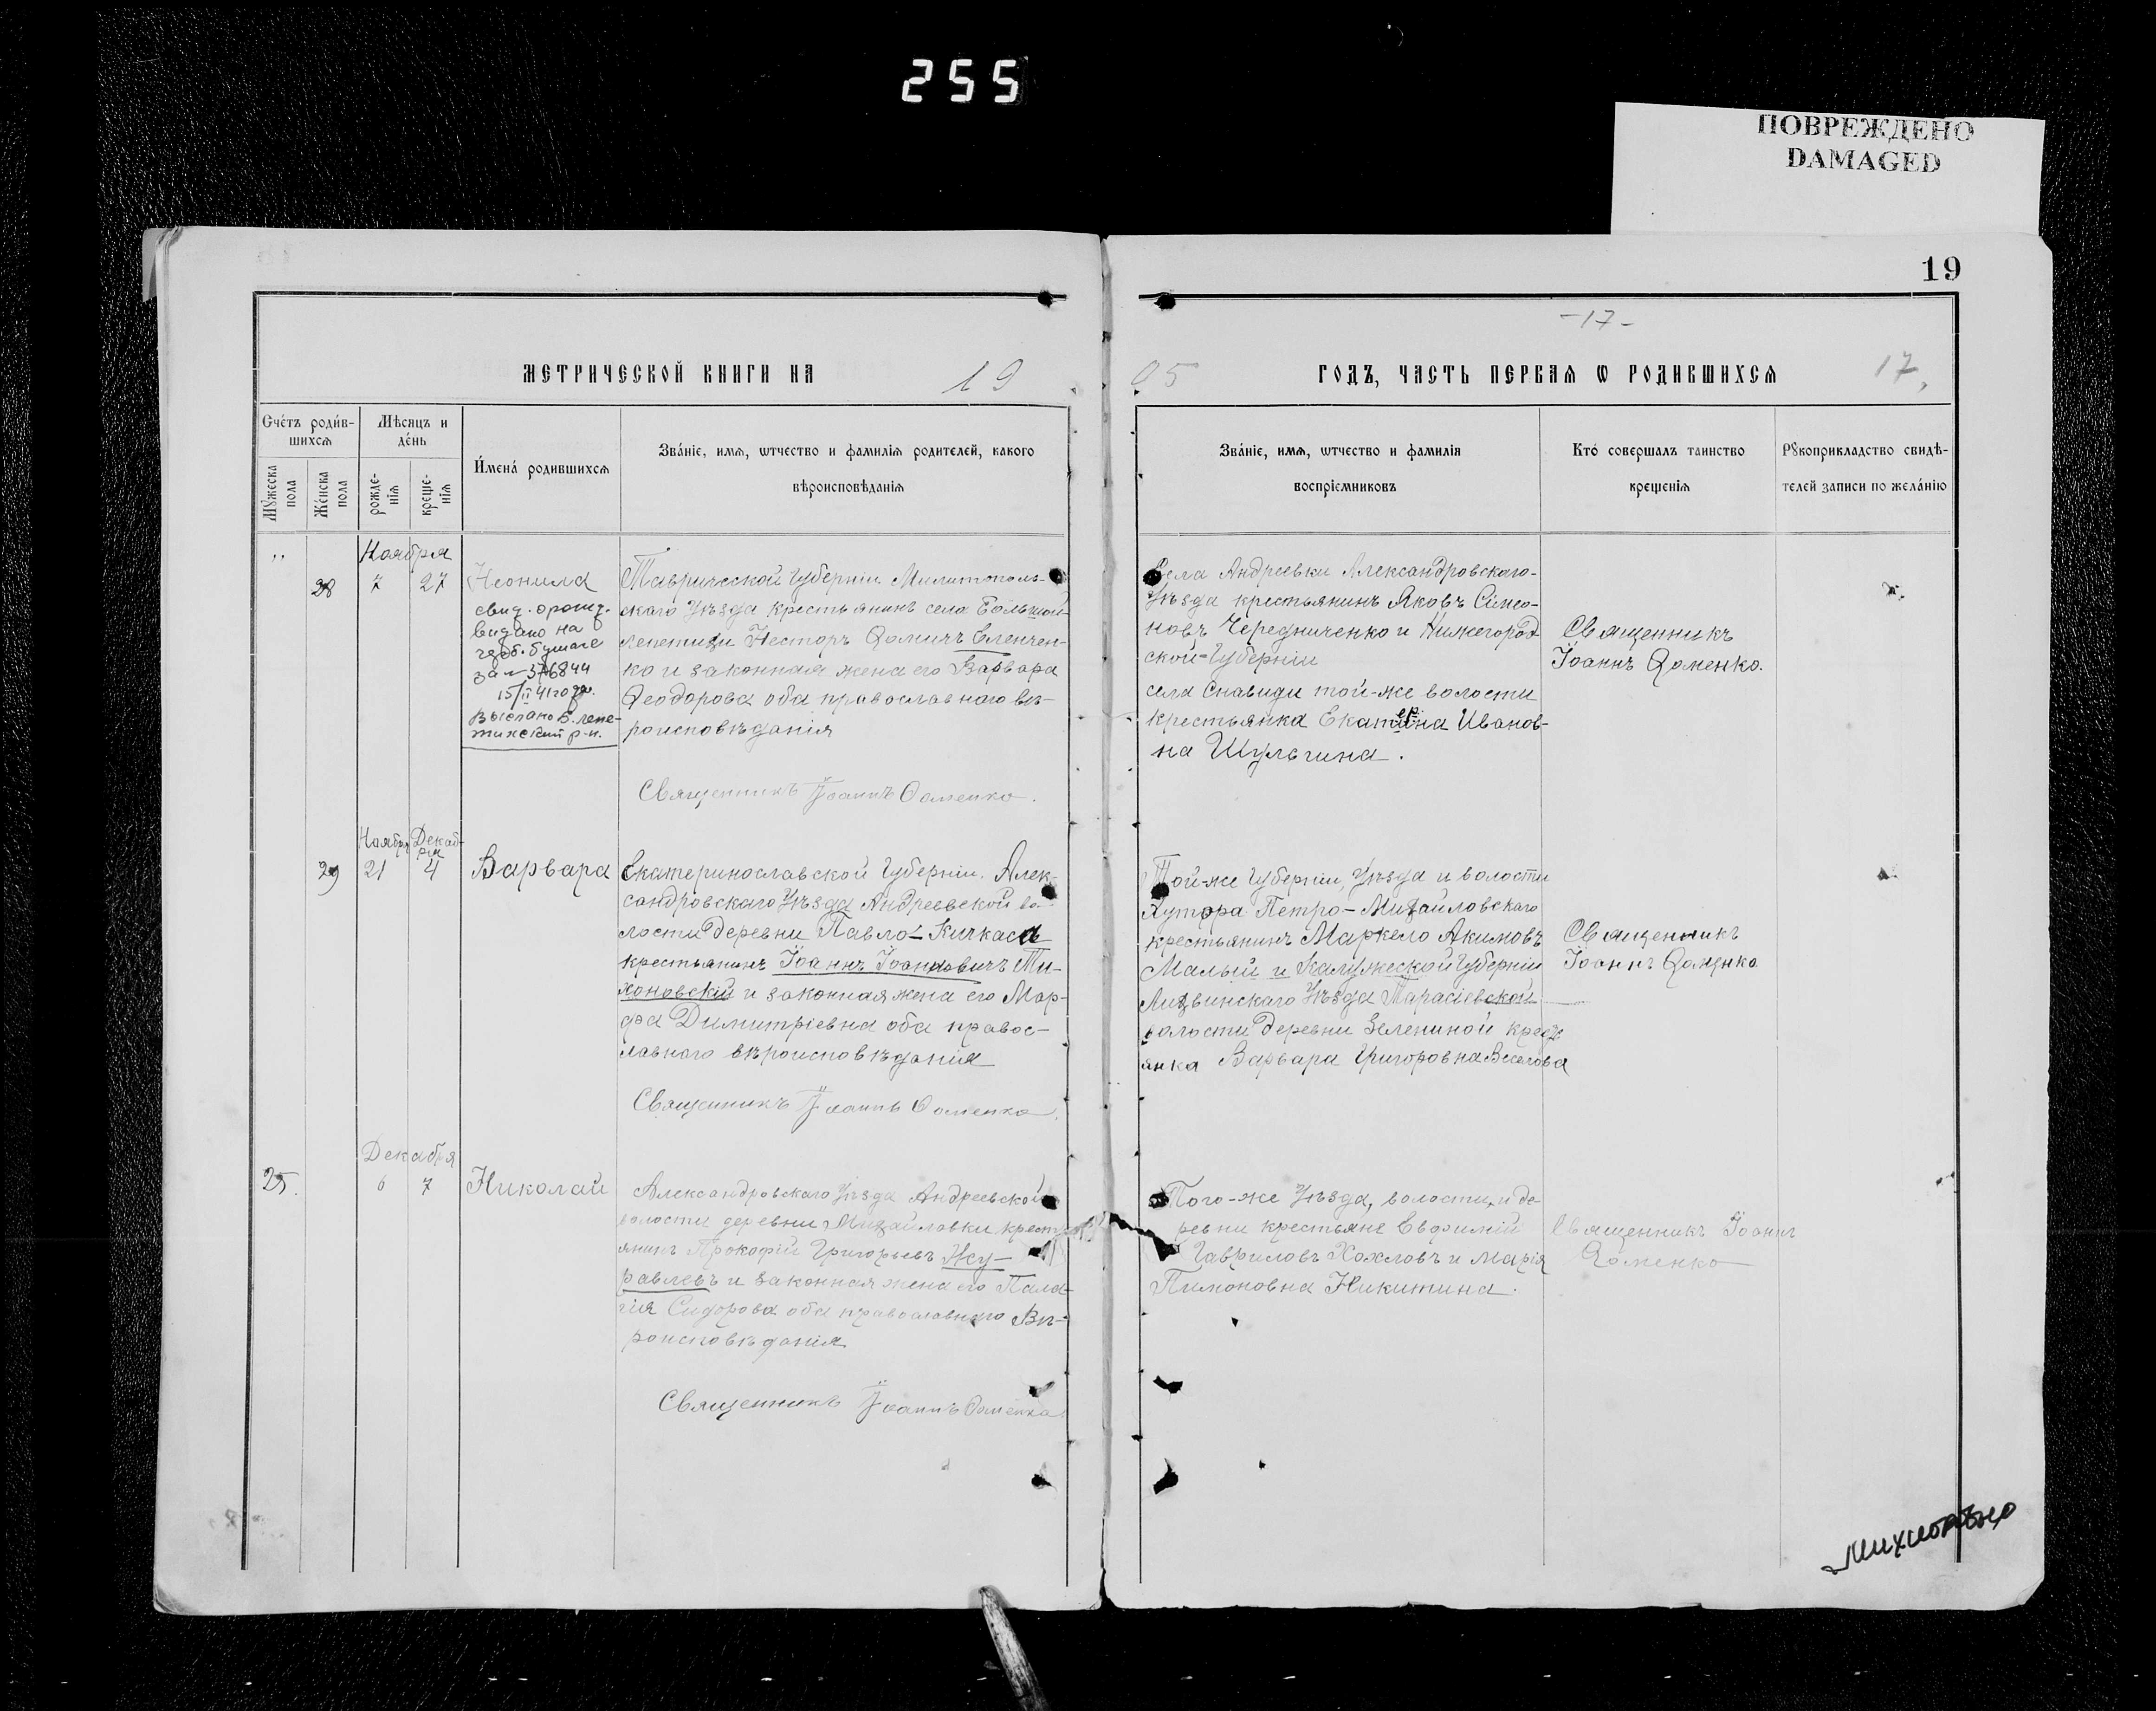 255
ПОВРЕЖДЕНО
DAMAGED
19
-17-
МЕТРИЧЕСКОЙ КНИГИ НА 19
05 ГОДЪ, ЧАСТЬ ПЕРВАѦ Ѡ РОДИВШИХСѦ 17,
Счéтъ родѝв-
шихсѧ
Мѣсѧцъ и
дéнь
Мꙋжеска
пола
Жéнска
пола
рожде-
нїѧ
креще-
нїѧ
И́мена́ родившихсѧ
Зва́нїе, имѧ, ѡтчество и фамилїѧ родителей, какого
вѣроисповѣданїѧ
Зва́нїе, имѧ, ѡтчество и фамилїѧ
воспрїемниковъ
Ктó совершалъ таинство
крещенїѧ
Рꙋкоприкладство свидѣ-
телей записи по жела́нїю
,, Ноября
28 7 27 Неонила
свид. о рожд.
видано на
герб. бумаге
15/II 41 года
Выслано Б. лепе-
тихский р-н.
Таврической Губерніи Милитополь-
скаго Уѣзда крестьянинъ села Большой
лепетихи Несторъ Ѳомичъ Еленчен-
ко и законная жена его Варвара
Ѳеодорова оба православнаго вѣ-
роисповѣданія
Священникъ Іоаннъ Ѳоменко.
Села Андреевки Александровскаго-
Уѣзда крестьянинъ Яковъ Симо-
новъ Чередниченко и Нижегород-
ской-Губерніи
села Спавиди той-же волости
крестьянка Екатерина Иванов-
на Шульгина.
Священникъ
Іоаннъ Ѳоменко.
Ноябр Декаб-
ря
29 21 4 Варвара
Екатеринославской Губерніи. Алек-
сандровскаго Уѣзда Андреевской во-
лости деревни Павло-Кичкаса
крестьянинъ Іоаннъ Іоанновичъ Ти-
хоновскій и законная жена его Мар-
фа Димитріевна оба правос-
лавнаго вѣроисповѣданія
Священникъ Іоаннъ Ѳоменко.
Той-же Губерніи, Уѣзда и волости
Хутора Петро-Михайловскаго
крестьянинъ Маркело Акимовъ
Малый и Калужеской Губерніи
Лихвинскаго Уѣзда Тарасіевской
волости деревни Зелениной крест
янка Варвара Григоровна Веселова
Священникъ
Іоаннъ Ѳоменко
Декабря
25. 6 7 Николай
Александровскаго Уѣзда Андреевской
волости деревни Михайловки крестья
янинъ Прокофій Григорьевъ Жу-
равлевъ и законная жена его Пала-
гія Сидорова оба православнаго Вѣ-
роисповѣданія
Священникъ Іоаннъ Ѳоменко
Того-же Уѣзда, волости и де-
ревни крестьяне Евфимій
Гавриловъ Хохловъ и Марія
Пимоновна Никитина.
Священникъ Іоаннъ
Ѳоменко